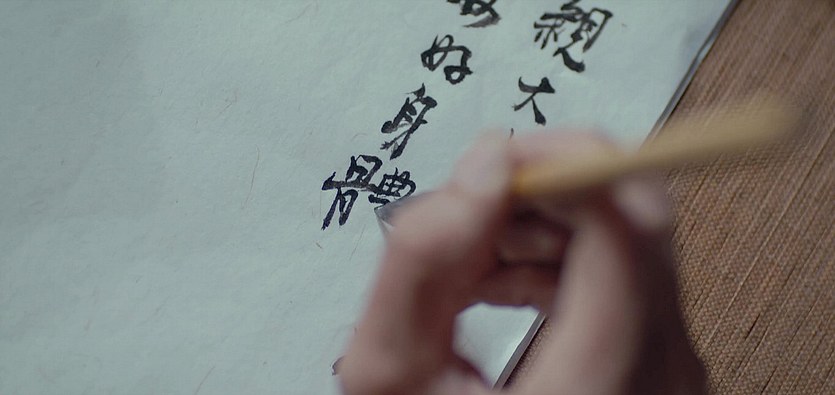 親大
ぬ身體